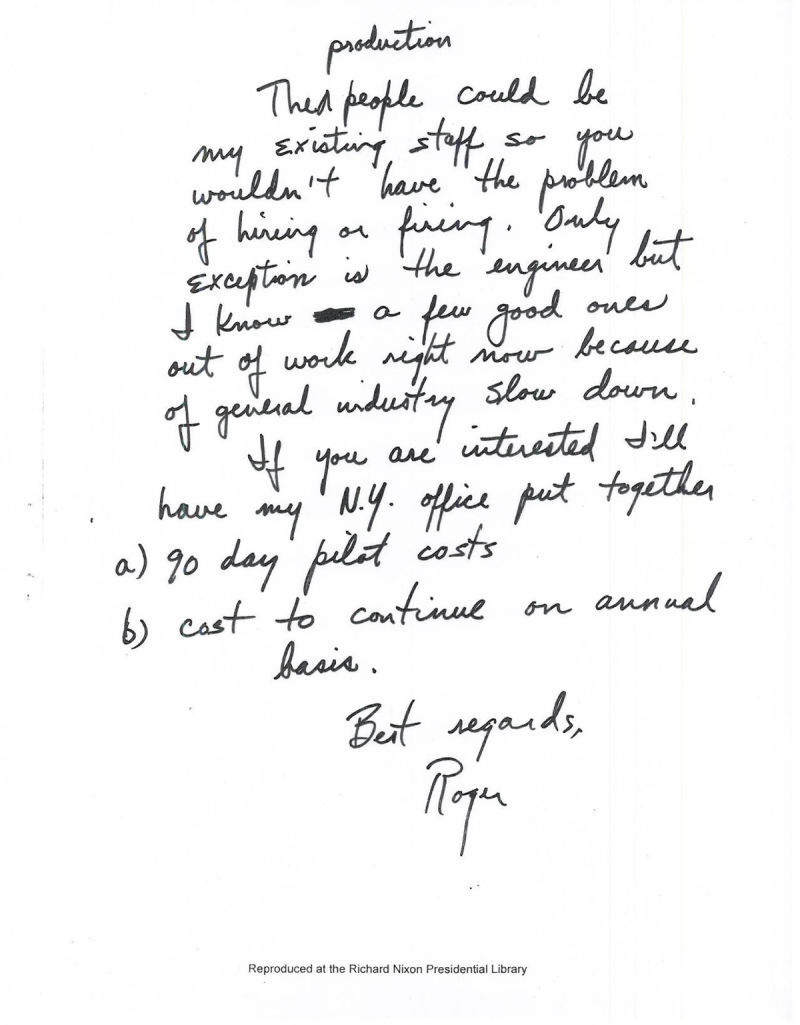 production
These people could be
my existing staff so you
wouldn't have the problem
of hiring or firing. Only
exception is the engineer but
I know a few good ones
out of work right now because
of general industry slow down.
If you are interested I'll
have my N.Y. office put together
a) 90 day pilot costs
b) cost to continue on annual
basis.
Best regards,
Roger
Reproduced at the Richard Nixon Presidential Library